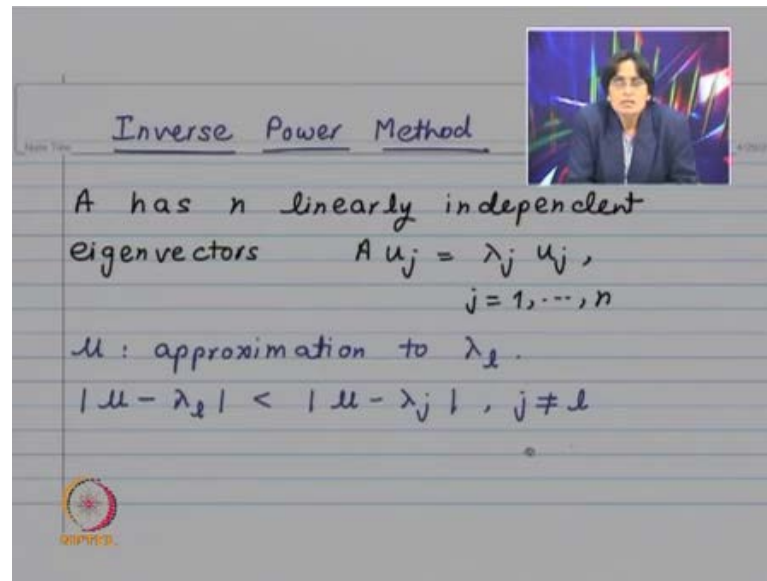 Inverse Power Method
A has n linearly independent
eigenvectors A u_j = λ_j u_j ,
j = 1, ..., n
μ : approximation to λ_l .
| μ - λ_l | < | μ - λ_j | , j ≠ l